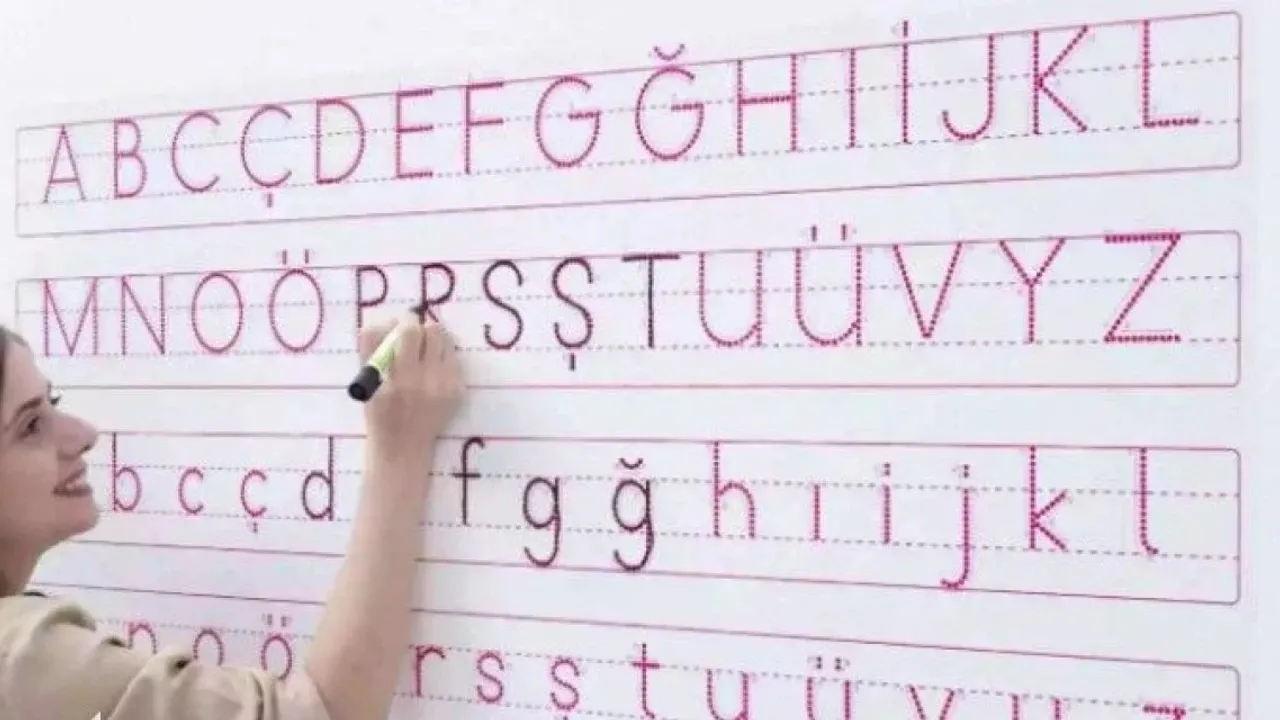 A B C Ç D E F G Ğ H I İ J K L
M N O Ö P R S Ş T U Ü V Y Z
b c ç d f g ğ h ı i j k l
n o ö r s ş t u ü v y z